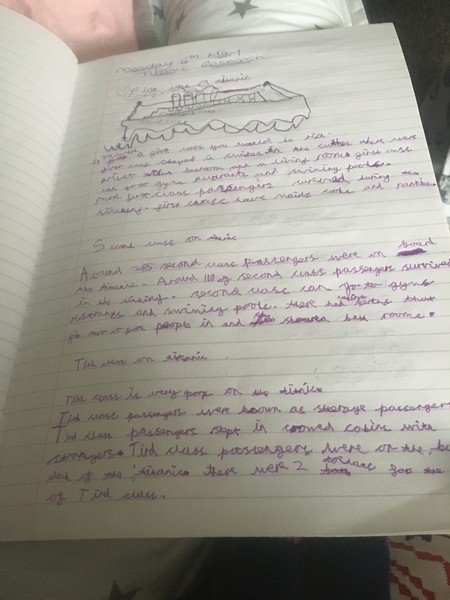 Monday 4th May
Titanic Research
First class on titanic
a first class you would be rich.
first class stayed in suites. In the suites there were
private bathroom and a living rooms first class
can go to gyms resturants and swiming pools.
more first class passengers survived during the
sincking. first class have maids cooks and
Second class on titanic
Around 285 second class passengers were on board
the titanic. Around 118 of second class passengers survived
in the sincking. second class can go to gyms
resturants and swiming pools. there had that
fit two or four people in and bad rooms.
Tird class on titanic
Tird class is very poor on the titanic
Tird class passengers were known as sterage passengers
Tird class passengers slept in cabins with
strangers. Tird class passengers were on the
deck of the titanic there were 2 for the
of Tird class.